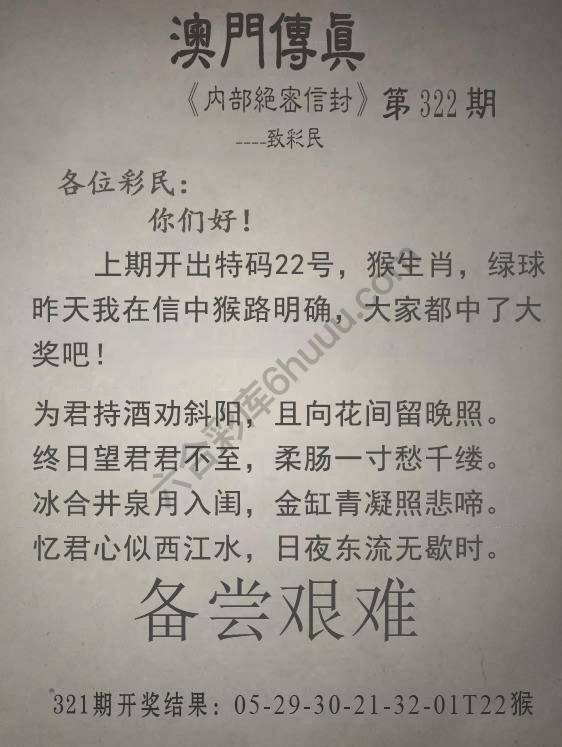 澳門傳眞
《内部絶密信封》第322期
----致彩民
各位彩民：
你们好！
上期开出特码22号，猴生肖，绿球
昨天我在信中猴路明确，大家都中了大
奖吧！
为君持酒劝斜阳，且向花间留晚照。
终日望君君不至，柔肠一寸愁千缕。
冰合井泉月入闺，金缸青凝照悲啼。
忆君心似西江水，日夜东流无歇时。
备尝艰难
321期开奖结果：05-29-30-21-32-01T22猴
六合彩库6huuu.com